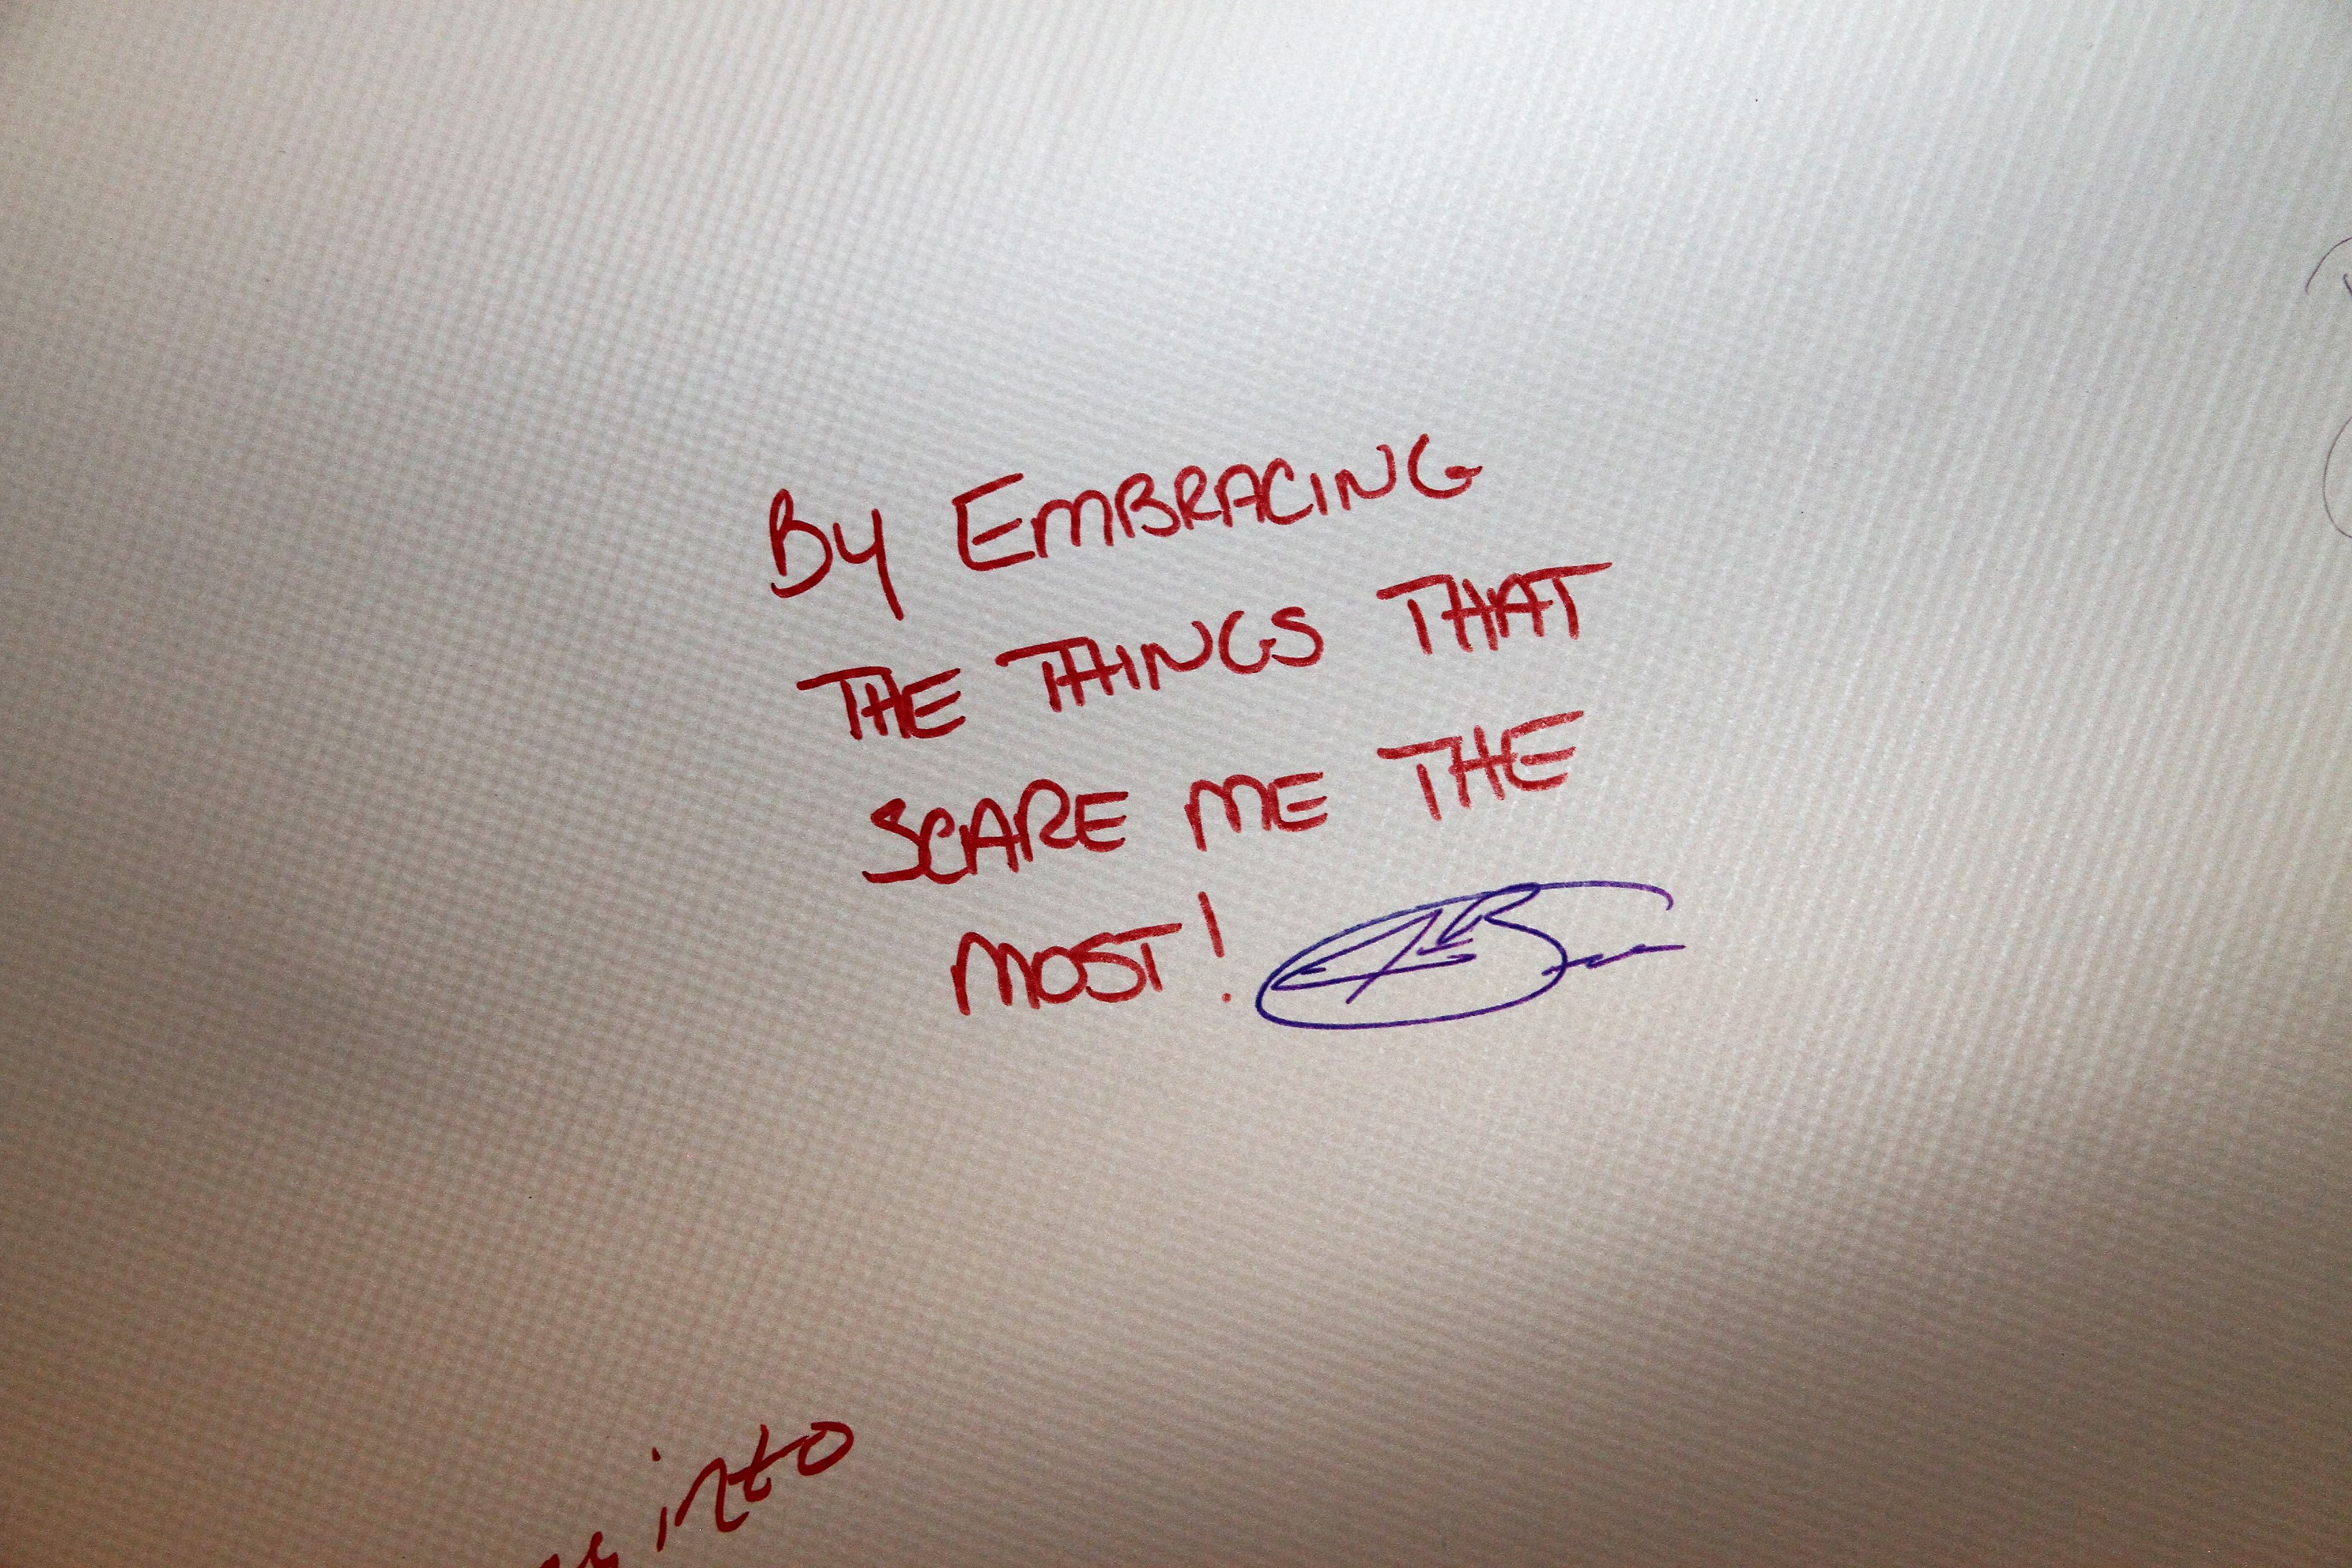 By EMBRACING
THE THINGS THAT
SCARE ME THE
MOST!
into